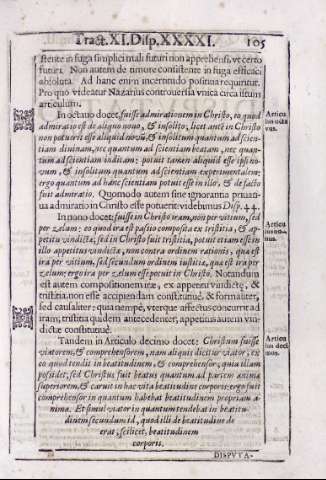 Tract. XI. Disp. XXXXI. 105
stente in fuga simplici mali futuri non apprehensi, vt certo
futuri. Non autem de timore consistente in fuga efficaci
absoluta. Ad hanc enim incertitudo positiua requiritur.
Pro quo videatur Nazarius controuersia vnica circa istum
articulum.
In octauo docet, fuisse admirationem in Christo, eo quod
admiratio est de aliquo nouo, & insolito, licet ante in Christo
non potuerit esse aliquid nouũ, & insolitum quantum ad scien-
tiam diuinam, nec quantum ad scientiam beatam, nec quan-
tum ad scientiam inditam: potuit tamen aliquid esse ipsi no-
uum, & insolitum quantum ad scientiam experimentalem:
ergo quantum ad hanc scientiam potuit esse in illo, & de facto
fuit admiratio. Quomodo autem sine ignorantia priuati-
ua admiratio in Christo esse potuerit videbimus Disp. 44.
In nono docet: fuisse in Christo iram, non per vitium, sed
per zelum: eo quod ira est passio composita ex tristitia, & ap-
petitu vindictæ, sed in Christo fuit tristitia, potuit etiam esse in
illo appetitus vindictæ, non contra ordinem rationis, quæ est
ira per vitium, sed secundum ordinem iustitiæ, quæ est ira per
zelum: ergo ira per zelum esse potuit in Christo. Notandum
est autem compositionem iræ, ex appetitu vindictę, &
tristitia non esse accipiendam constitutiuè, & formaliter,
sed causaliter: quia nempè, vterque affectus concurrit ad
iram; tristitia quidem antecedenter, appetitus autem vin-
dictæ constitutiuè.
Tandem in Articulo decimo docet: Christum fuisse
viatorem, & comprehensorem, nam aliquis dicitur viator, ex
eo quod tendit in beatitudinem, & comprehensor, quia illam
possidet, sed Christus fuit beatus quantum ad partem animæ
superiorem, & caruit in hac vita beatitudine corporis: ergo fuit
comprehensor in quantum habebat beatitudinem propriam a-
nimæ. Et simul viator in quantum tendebat in beatitu-
dinem secundum id, quod illi de beatitudine de
erat, scilicet, beatitudinem
corporis.
Articu
lus octa
uus.
Articu
lus no-
nus.
Articu
lus deci
mus.
DISPVTA-